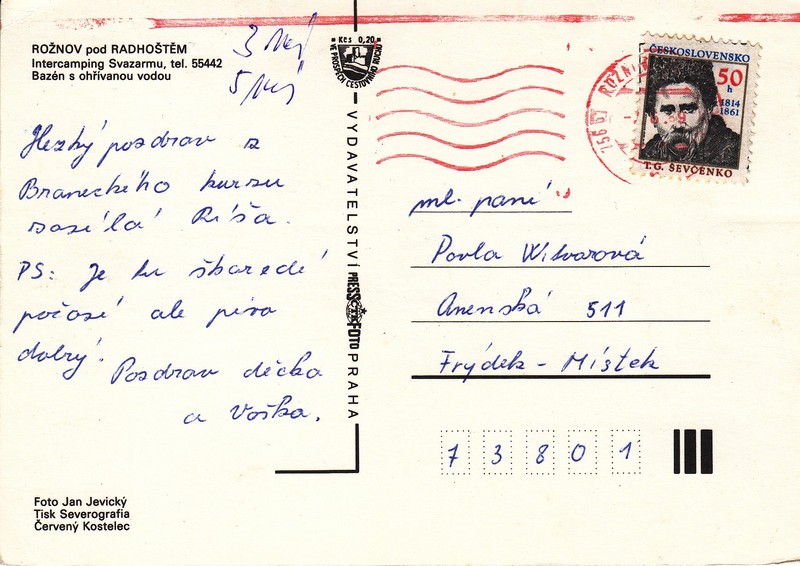 ROŽNOV pod RADHOŠTĚM
Intercamping Svazarmu, tel. 55442
Bazén s ohřívanou vodou
Hezký pozdrav z
Braneckého kurzu
zasílá Ríša.
PS: Je tu škaredé
počasí ale pivo
dobrý.
Pozdrav děcka
a Vaška.
Foto Jan Jevický
Tisk Severografia
Červený Kostelec
Kčs 0,20
VE PROSPĚCH CESTOVNÍHO RUCHU
VYDAVATELSTVÍ PRESSFOTO PRAHA
756 61 ROŽNOV
ČESKOSLOVENSKO
50 h
1814
1861
T.G. ŠEVČENKO
ml. paní
Pavla Witvarová
Anenská 511
Frýdek - Místek
7 3 8 0 1